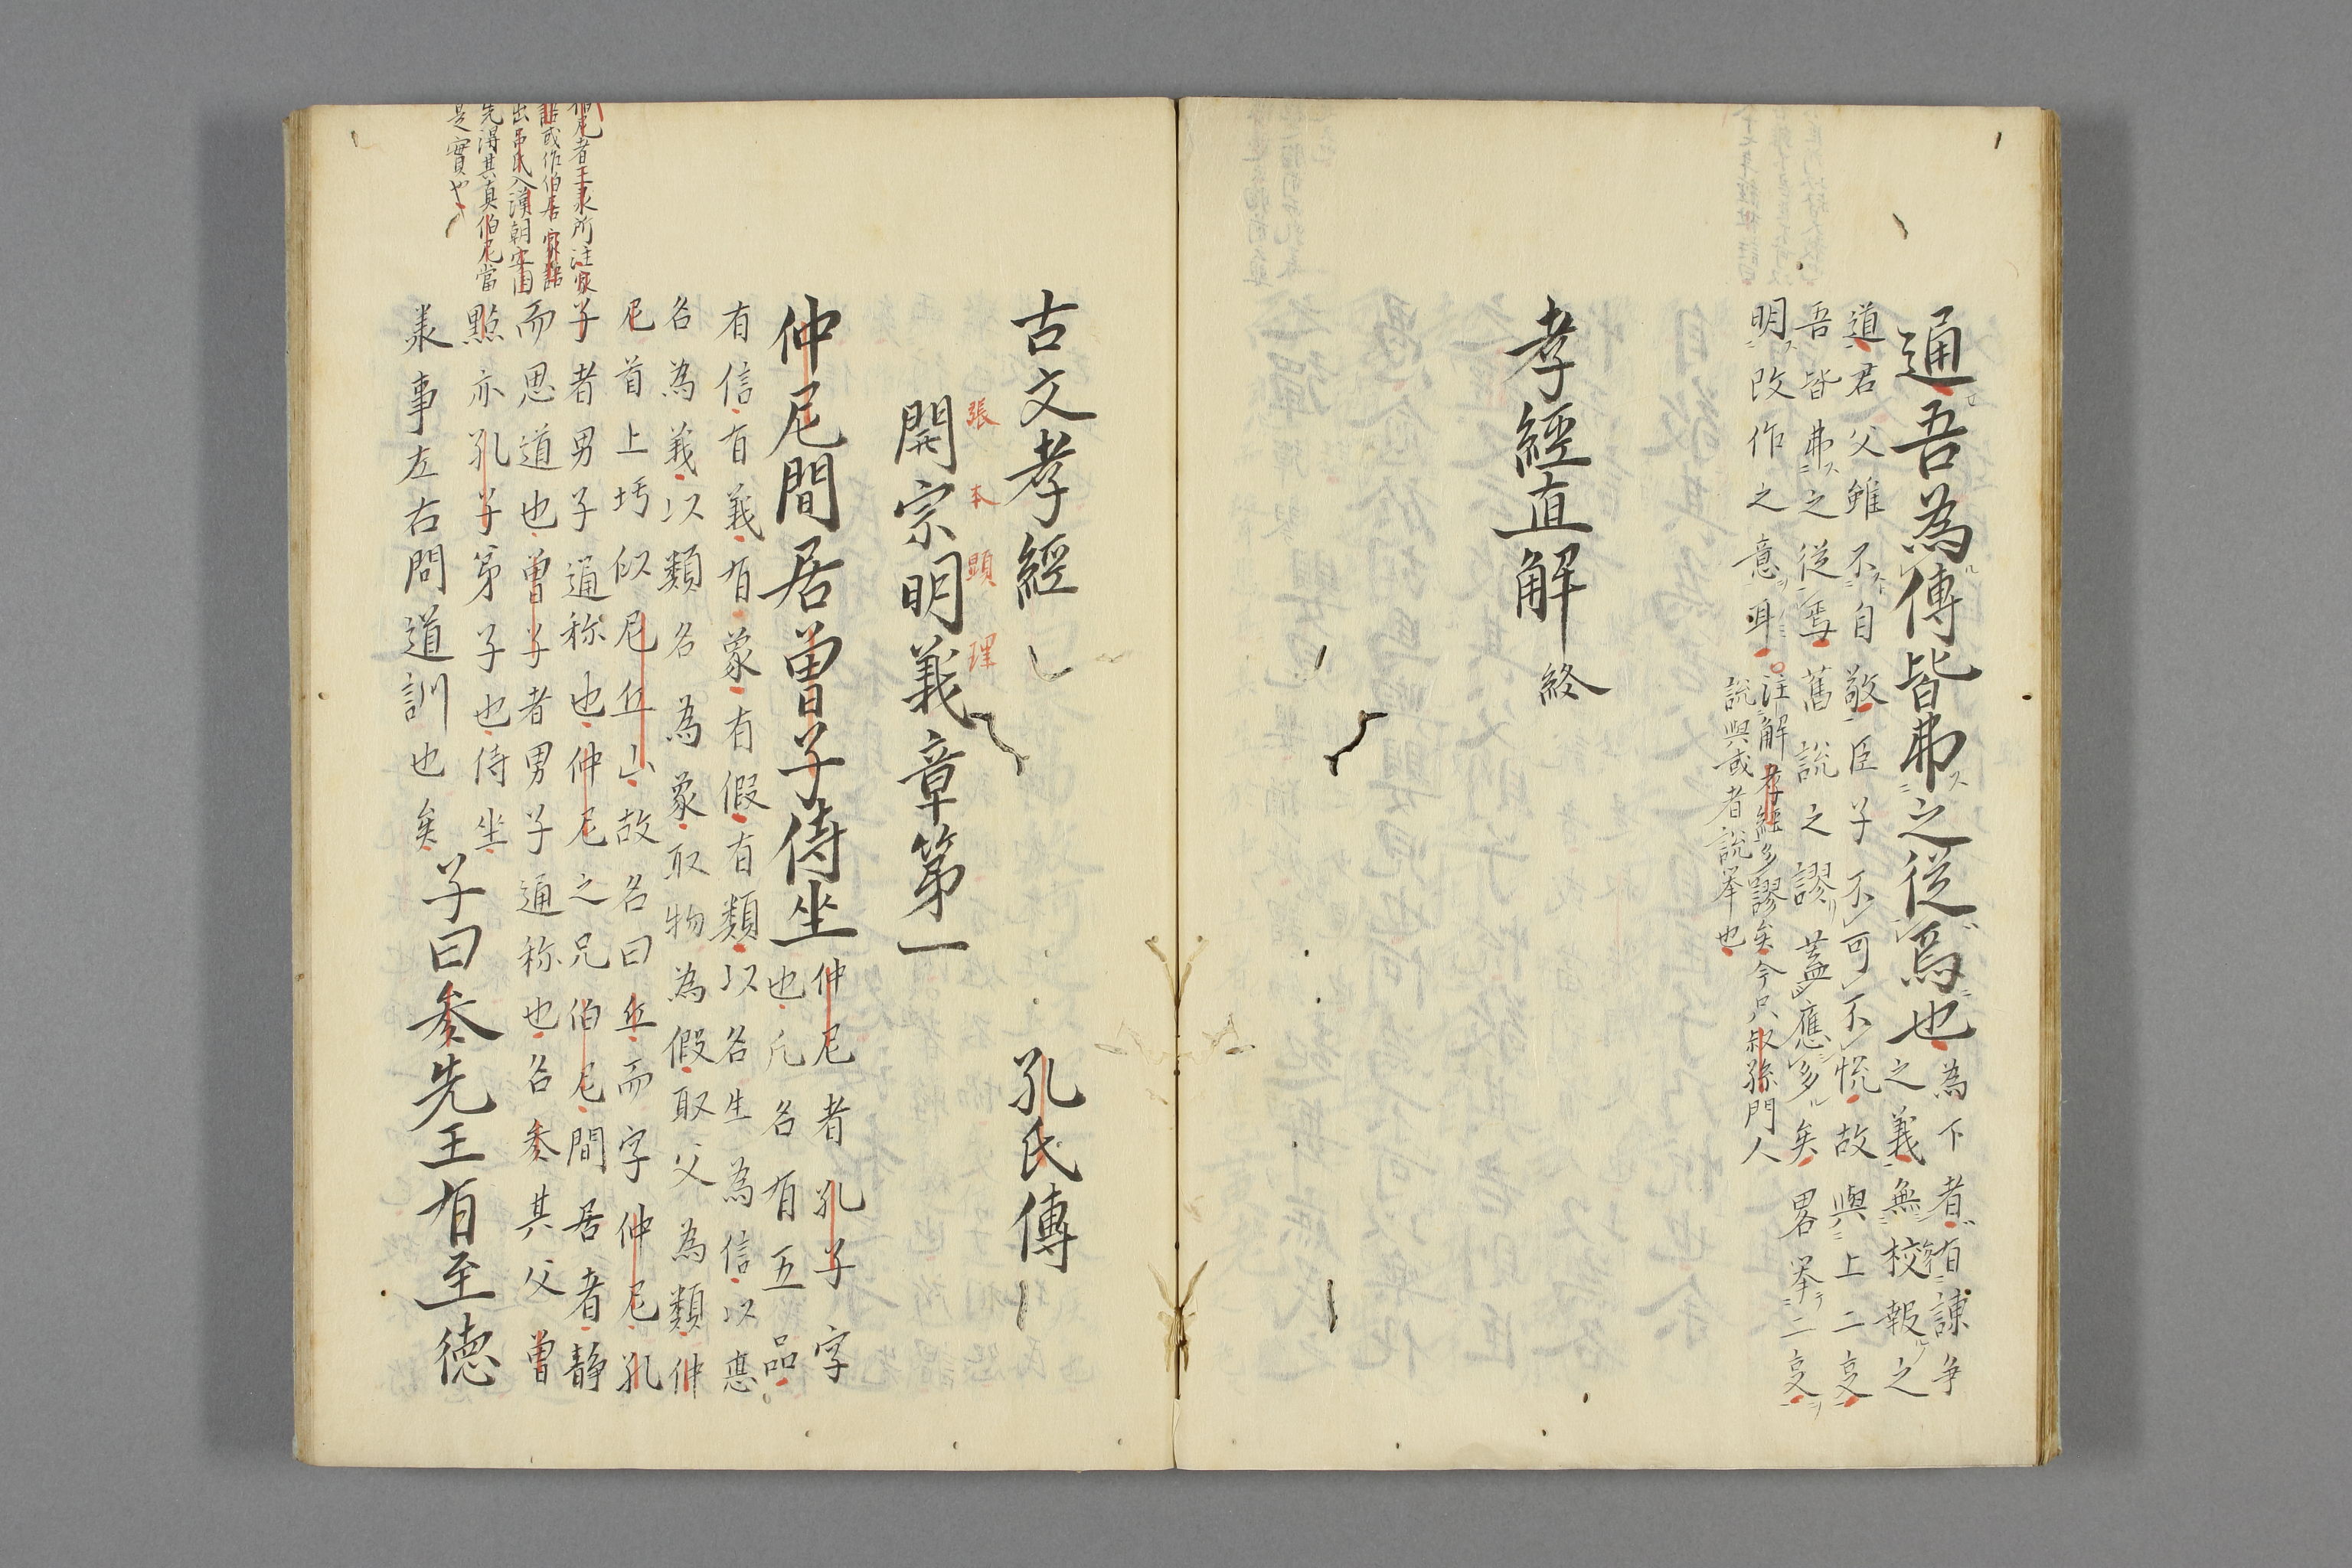 通吾為傳皆弗之從焉也為下者有諌争
之義無校報之
道君父雖不自敬臣子不可不慌故與上二㕝
吾皆弗之從焉舊說之謬蓋應多矣畧举二㕝
明改作之意耳
注解孝經多謬矣今只叔孫門人
說與或者說举也
孝經直解 終
古文孝經 孔氏傳
張 本 顕 理
開宗明義章第一
仲尼間居曽子侍坐仲尼者孔子字
也凢名有五品
有信有義有𧰼有假有類以名生為信以悳
名為義以類名為𧰼取物為假取父為類仲
尼首上圬似尼丘山故名曰丘而字仲尼孔
子者男子通称也仲尼之兄伯尼間居者静
而思道也曽子者男子通称也名参其父曽
點亦孔子第子也侍坐
羕事左右問道訓也矣子曰参先王有至徳
伯尼者王肅所注家
語或作伯居家語
出吕氏入漢朝安国
先得其真伯尼當
是實也